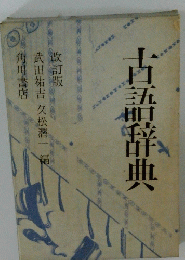 古語辞典
改訂版
武田祐吉 久松潜一 編
角川書店